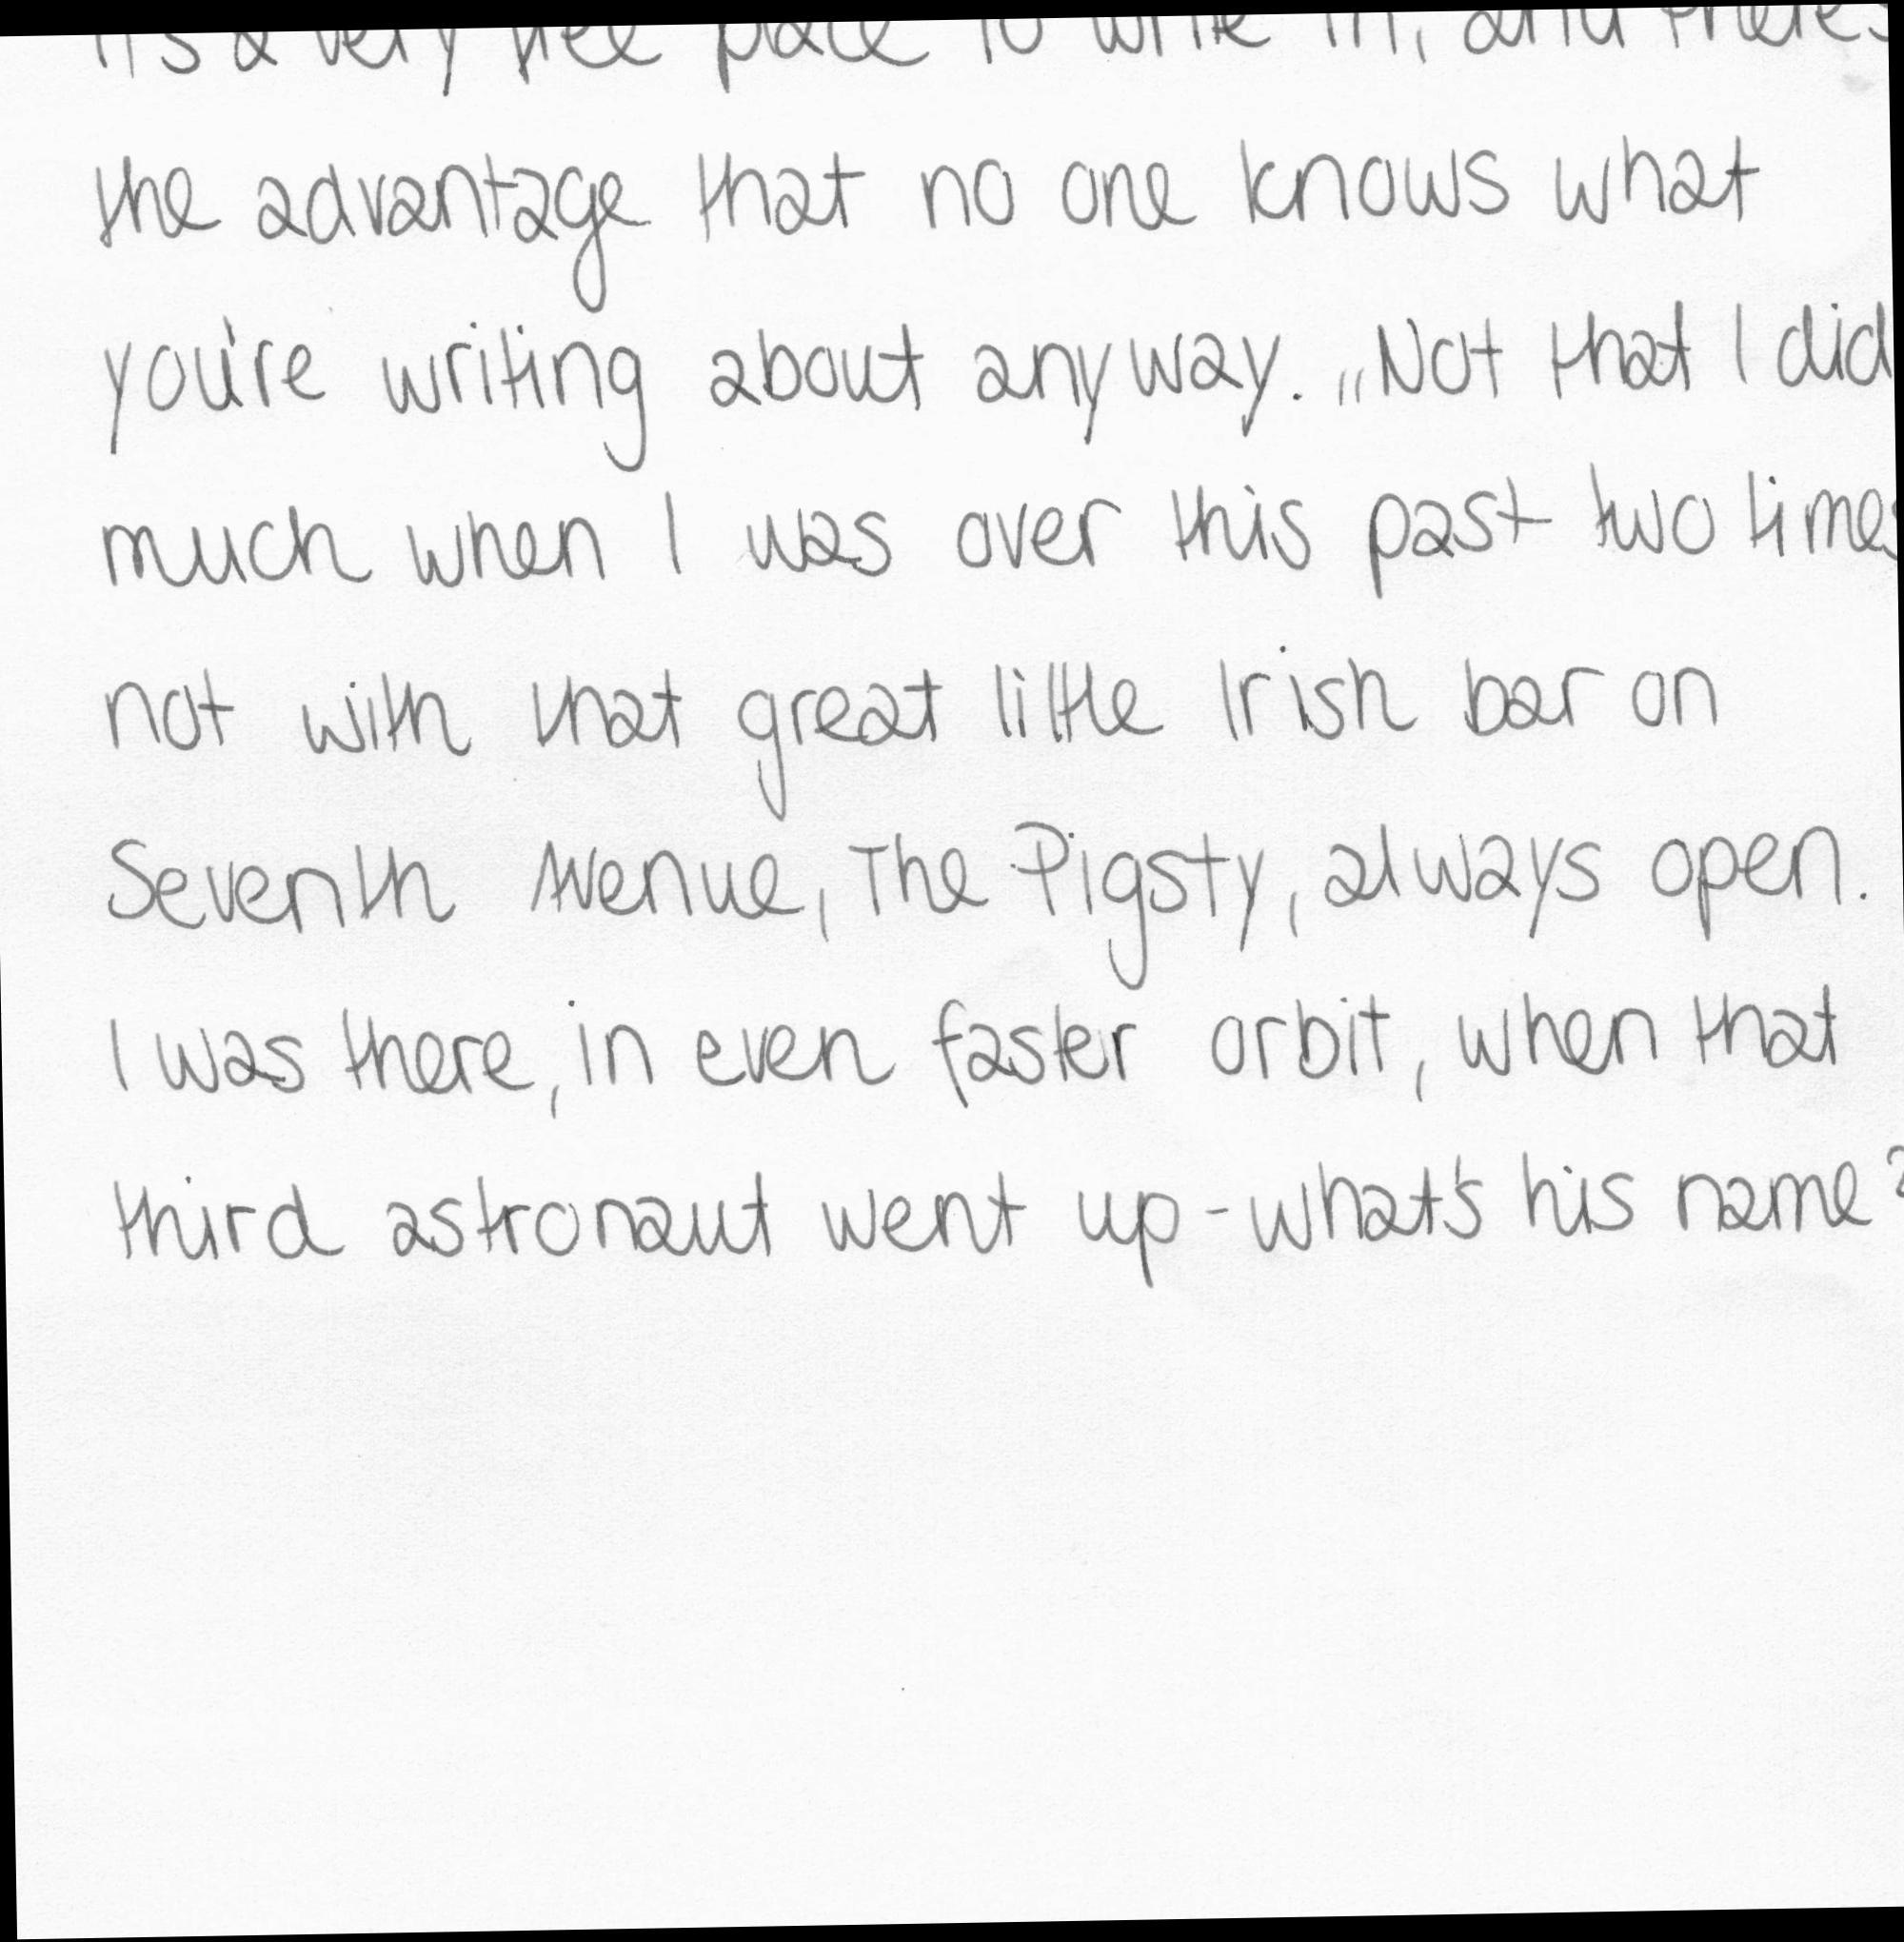 it's a very free place to write in, and there's
the advantage that no one knows what
you're writing about anyway. „Not that I did
much when I was over this past two times
not with that great little Irish bar on
Seventh Avenue, The Pigsty, always open.
I was there, in even faster orbit, when that
third astronaut went up - what's his name?